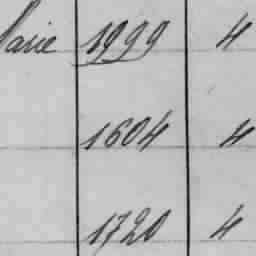 Marie 1999 4
1604 4
1720 4